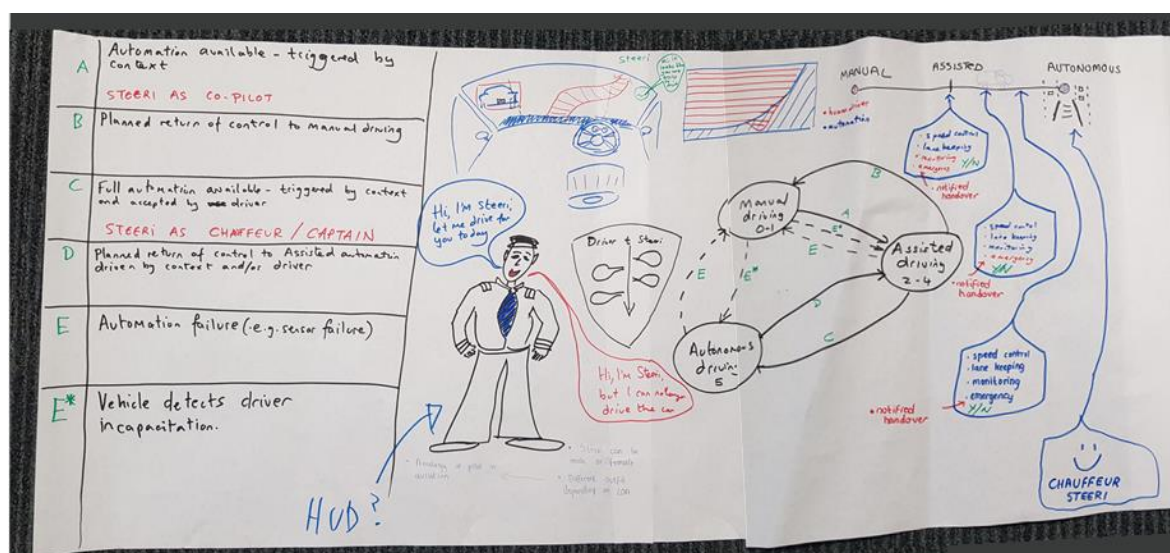 A
Automation available - triggered by
context
STEERI AS CO-PILOT
B
Planned return of control to manual driving
C
Full automation available - triggered by context
and accepted by driver
STEERI AS CHAUFFEUR / CAPTAIN
D
Planned return of control to Assisted automation
driven by context and/or driver
E
Automation failure (e.g. sensor failure)
E*
Vehicle detects driver
incapacitation.
Steeri
Hi, I'm Steeri,
let me drive for
you today
Driver & Steeri
Hi, I'm Steeri,
but I can no longer
drive the car
HUD?
• Analogy of pilot in
• Steeri can be
male or female
• Different outfit
depending on LOA
• human driver
• automation
MANUAL
ASSISTED
AUTONOMOUS
Manual
driving
0-1
Assisted
driving
2-4
Autonomous
driving
5
B
A
E*
E
E
E*
D
C
• speed control
• lane keeping
• monitoring
• emergency Y/N
• notified
handover
• speed control
• lane keeping
• monitoring
• emergency
Y/N
• notified
handover
• speed control
• lane keeping
• monitoring
• emergency
Y/N
• notified
handover
CHAUFFEUR
STEERI